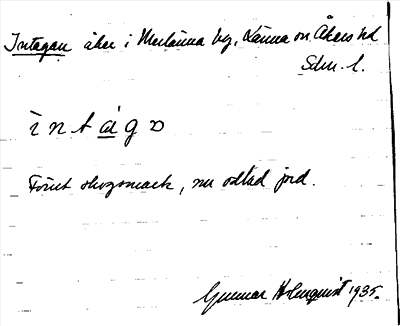 Intagan åker i Merlänna by, Länna sn. Åkers hd
Sdm. l.
ìntàgɷ
Förut skogsmark, nu odlad jord.
Gunnar Holmquist 1935.